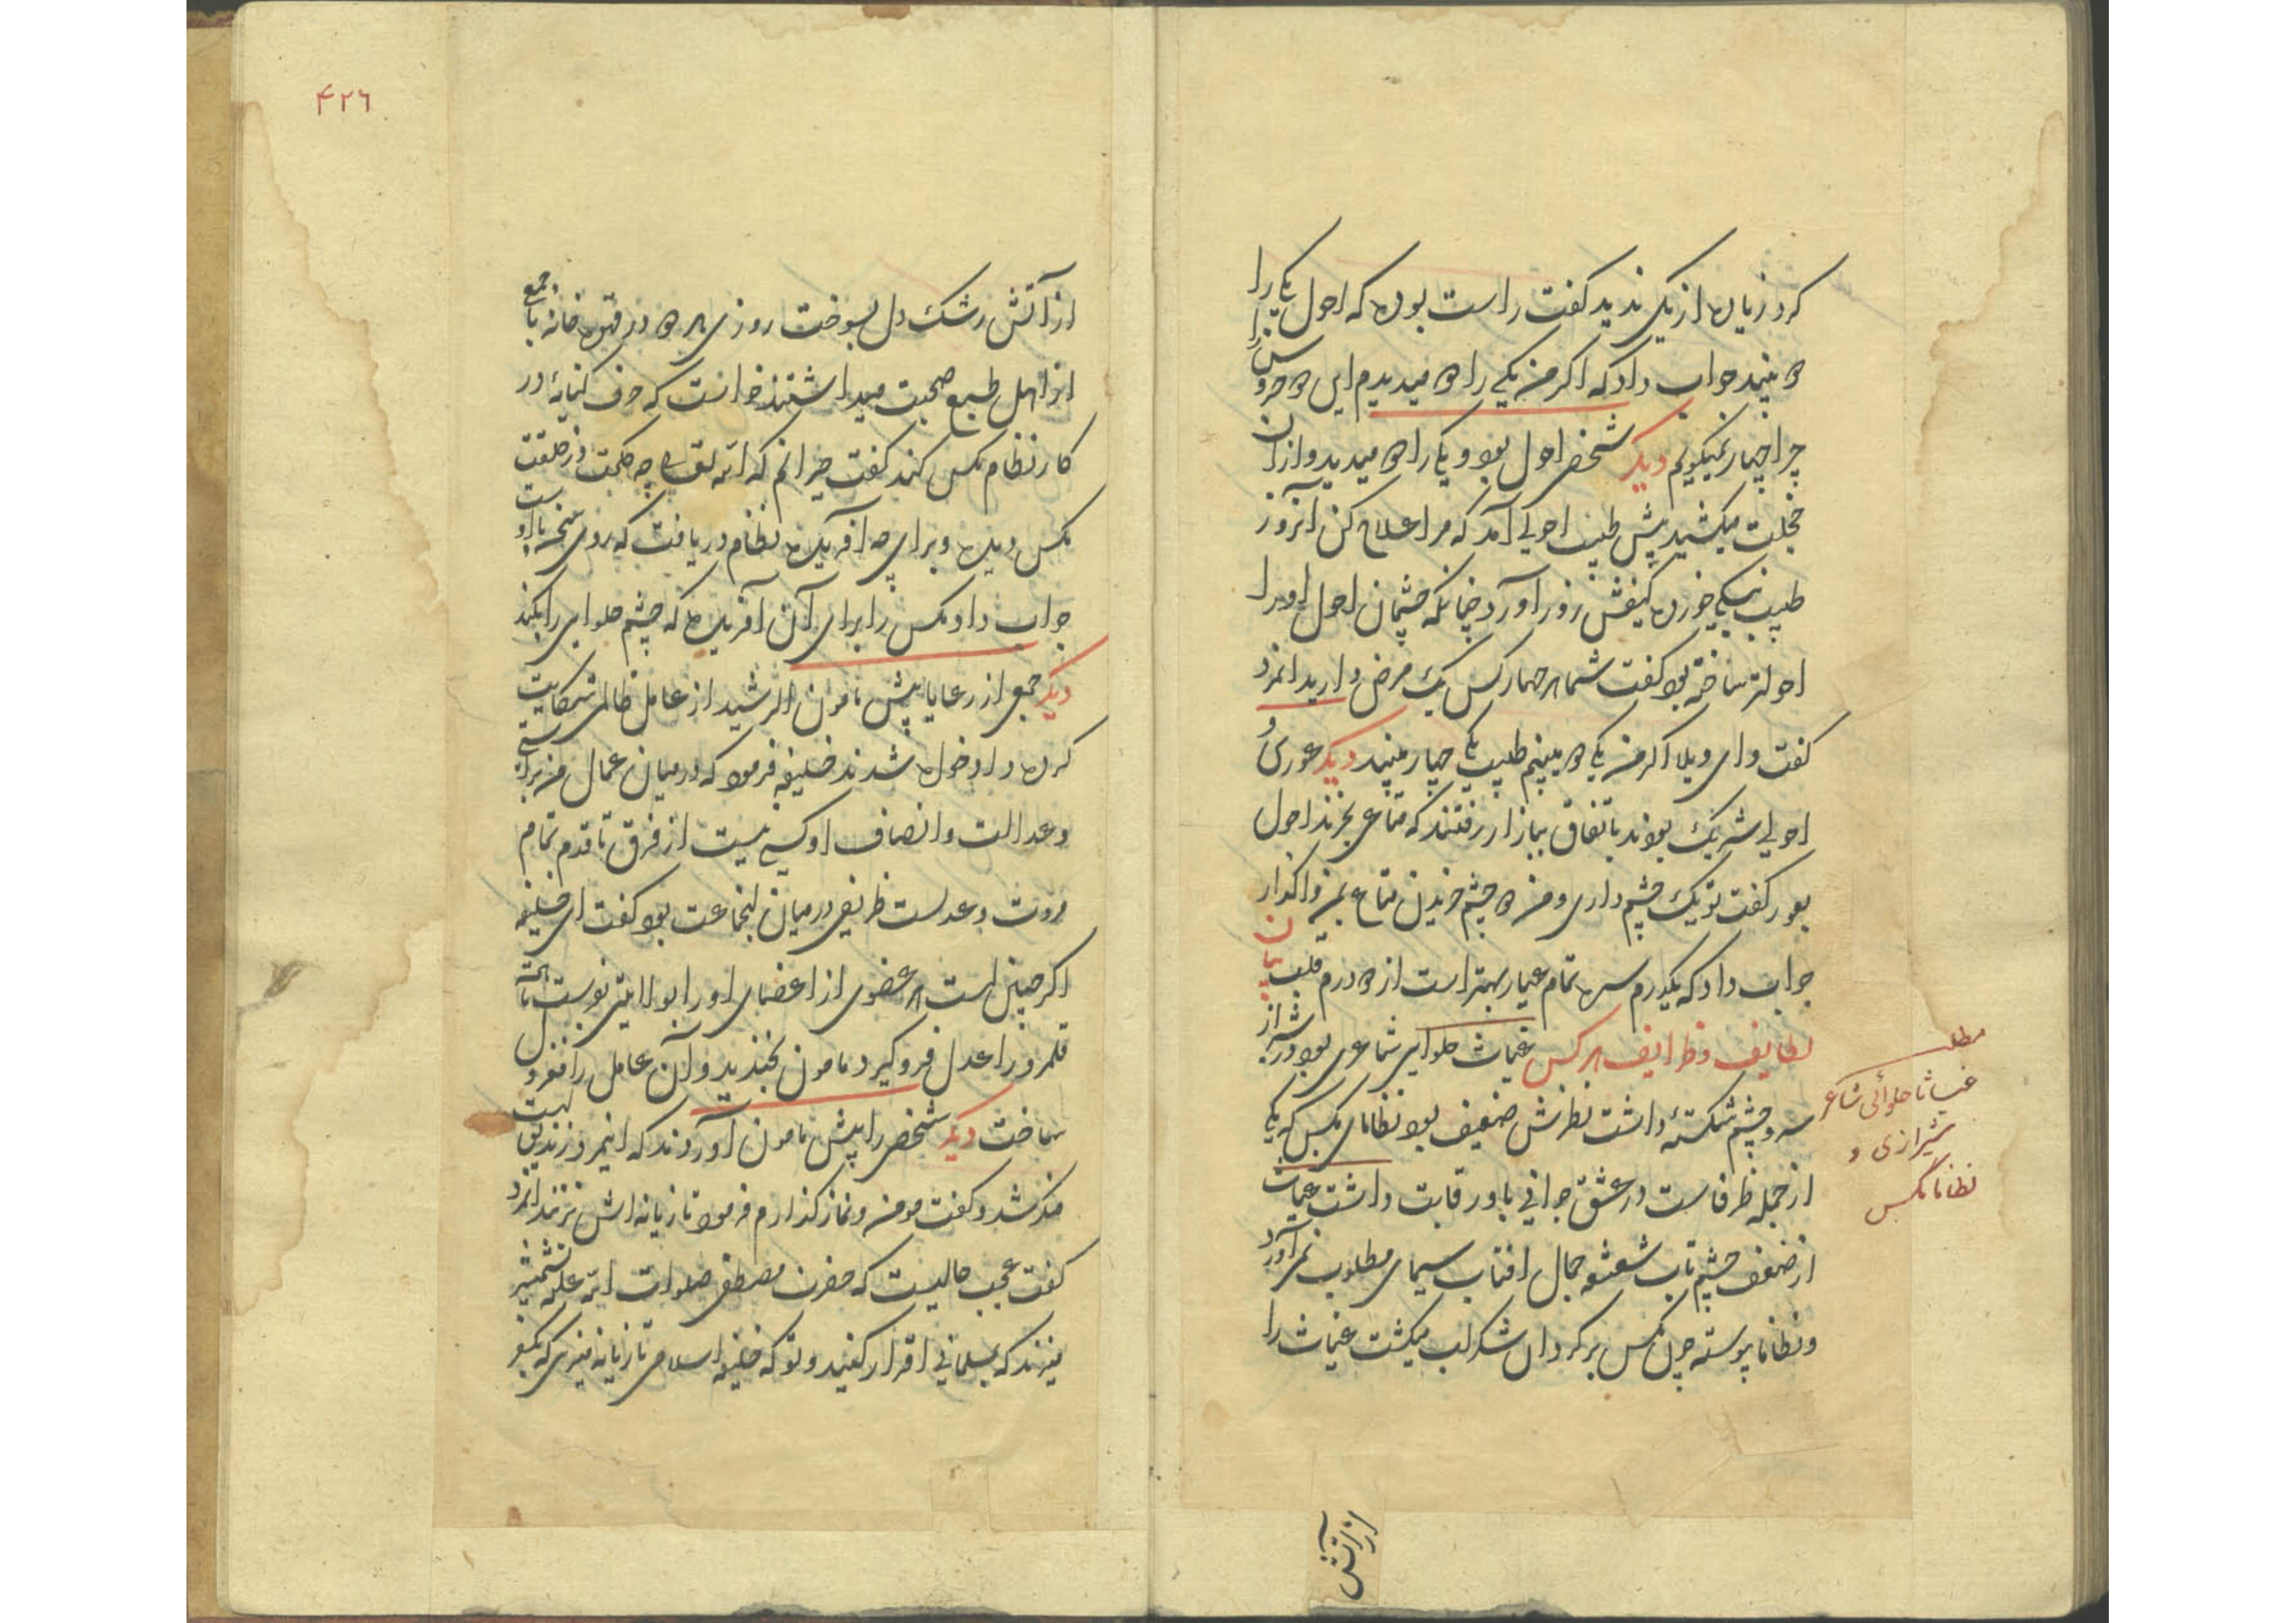 کرد زیاده از یکی ندید گفت راست بوده که احول یکی را
دو بیند جواب داد که اگر من یکی را دو میدیدم این دو خروس را
چرا چهار نمیگویم دیگر شخصی احول بود و یکی را دو میدید و از آن
خجلت میکشید پیش طبیب احولی آمد که مرا علاج کن آنروز
طبیب خورده کیفش زور آورده چنانکه چشمان احول او را
احولتر ساخته بود گفت شما هر چهار کس یک مرض دارید آنمرد
گفت وای ویلا اگر من یکی دو میبینم طبیب یکی چهار میبیند دیگر عوری و
احولی شریک بودند باتفاق ببازار رفتند که متاعی بخرند احول
بعور گفت تو یک چشم داری و من دو چشم خریدن متاع بمن واگذار
جواب داد که یکدرم سره تمام عیار بهتر است از دو درم قلب بیان
لطایف و ظرایف هر کس غیاث حلوایی شاعری بود در شیراز
سه و چشم شکسته داشت نظرش ضعیف بود نظامای مکس که یکی
از جمله ظرفاست در عشق جوانی با او رقابت داشت غیاث
از ضعف چشم تاب شعشعه جمال آفتاب سیمای مطلوب نمی آورد
و نظاما پیوسته چون مکس بر گرد آن شکر لب میگشت غیاث را
مطلب
غیاثا حلوائی شاعر
شیرازی و
نظاما مگس
از آتش
۴۲۶
از آتش رشک دل بسوخت روزی هر دو در قهوه خانه با جمعی
از اهل طبع صحبت میداشتند خواست که حرف کنایۀ در
کار نظام مکس کند گفت حیرانم که الله تعالی چه حکمت در خلقت
مکس دیده و برای چه آفریده نظام دریافت که روی سخن با اوست
جواب داد مکس را برای آن آفریده که چشم حلوایی را بکند
دیگر جمعی از رعایا پیش مامون الرشید از عامل ظالمی شکایت
کرده داد خواه شدند خلیفه فرمود که در میان عمال من براستی
و عدالت و انصاف او کسی نیست از فرق تا قدم تمام
مروت و عدلست ظریفی در میان آنجماعت بود گفت ای خلیفه
اگر چنین است هر عضوی از اعضای او را بولایتی بفرست تا همه
قلمرو را عدل فرو گیرد مامون بخندید و آن عامل را معزول
ساخت دیگر شخصی را پیش مامون آوردند که اینمرد زندیق است
منکر شد و گفت مومن و نماز گذارم فرمود تا زیانه اش بزنند آنمرد
گفت عجب حالیست که حضرت مصطفی صلوات الله علیه شمشیر
میزند که بمسلمانی اقرار کنید و تو که خلیفه اسلامی تازیانه میزنی که بکفر